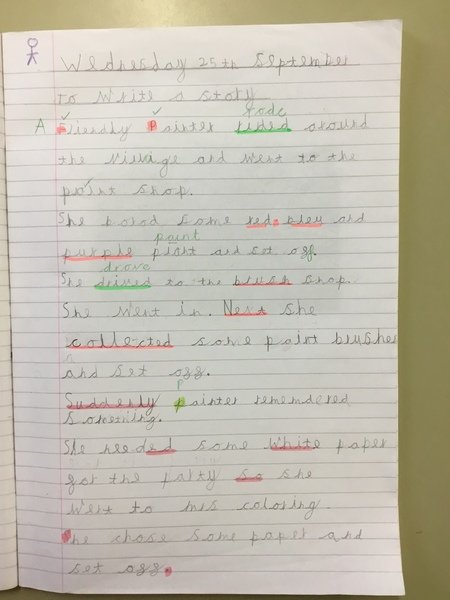 Wednesday 25th September
to write a story
rode
A Friendly Painter rided around
the village and went to the
paint shop.
She borod some red bleu and
paint
purple piant and set off.
drove
She drived to the brush shop.
She went in. Next she
collected some paint brushes
and set off.
p
Suddenly painter remembered
something.
She needed some white paper
for the party so she
went to mrs coloring.
he chose some paper and
set off.